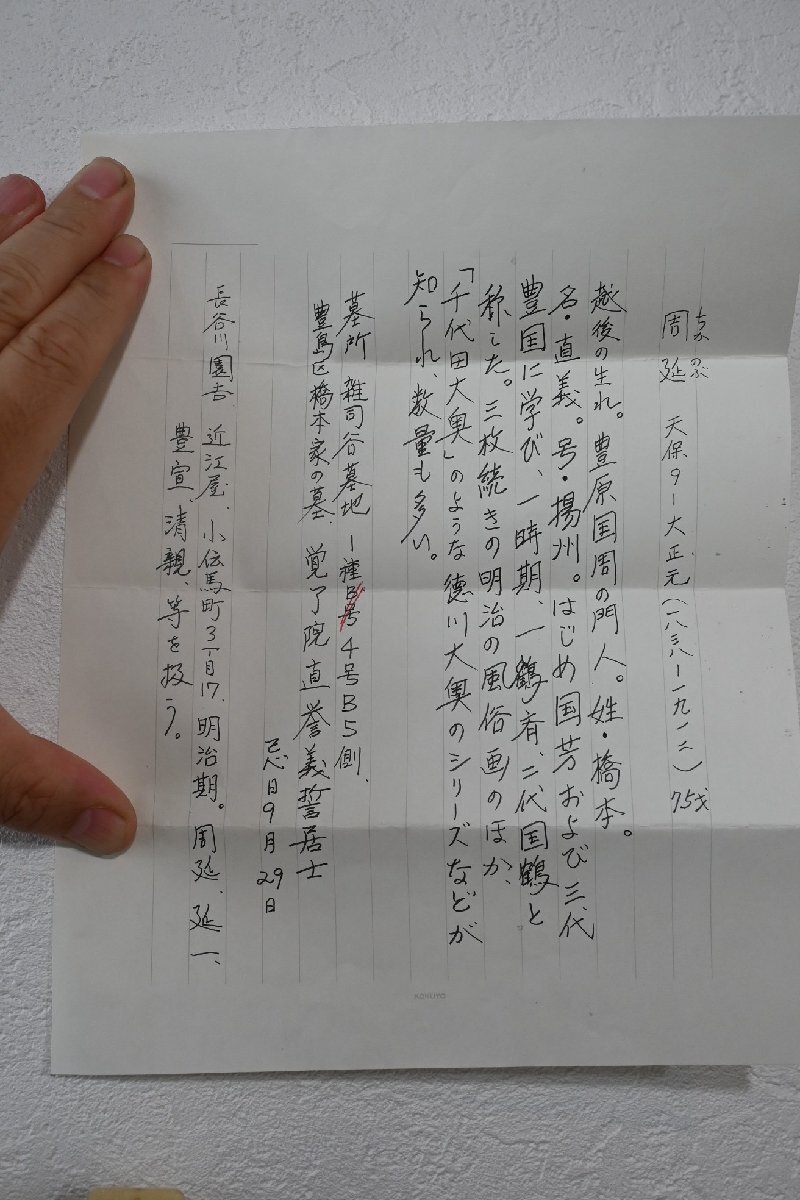 ちかのぶ
周延 天保9ー大正元(一八三八ー一九一二) 75才
越後の生れ。豊原国周の門人。姓・橋本。
名・直義。号・揚州。はじめ国芳および三代
豊国に学び、一時期、一鶴斎、二代国鶴と
称した。三枚続きの明治の風俗画のほか、
「千代田大奥」のような徳川大奥のシリーズなどが
知られ、数量も多い。
墓所 雑司谷墓地 1種B号4号B5側、
豊島区橋本家の墓、覚了院直誉義誓居士
忌日9月29日
長谷川園吉 近江屋、小伝馬町3丁目17、明治期。周延、延一、
豊宣、清親、等を扱う。
KOKUYO